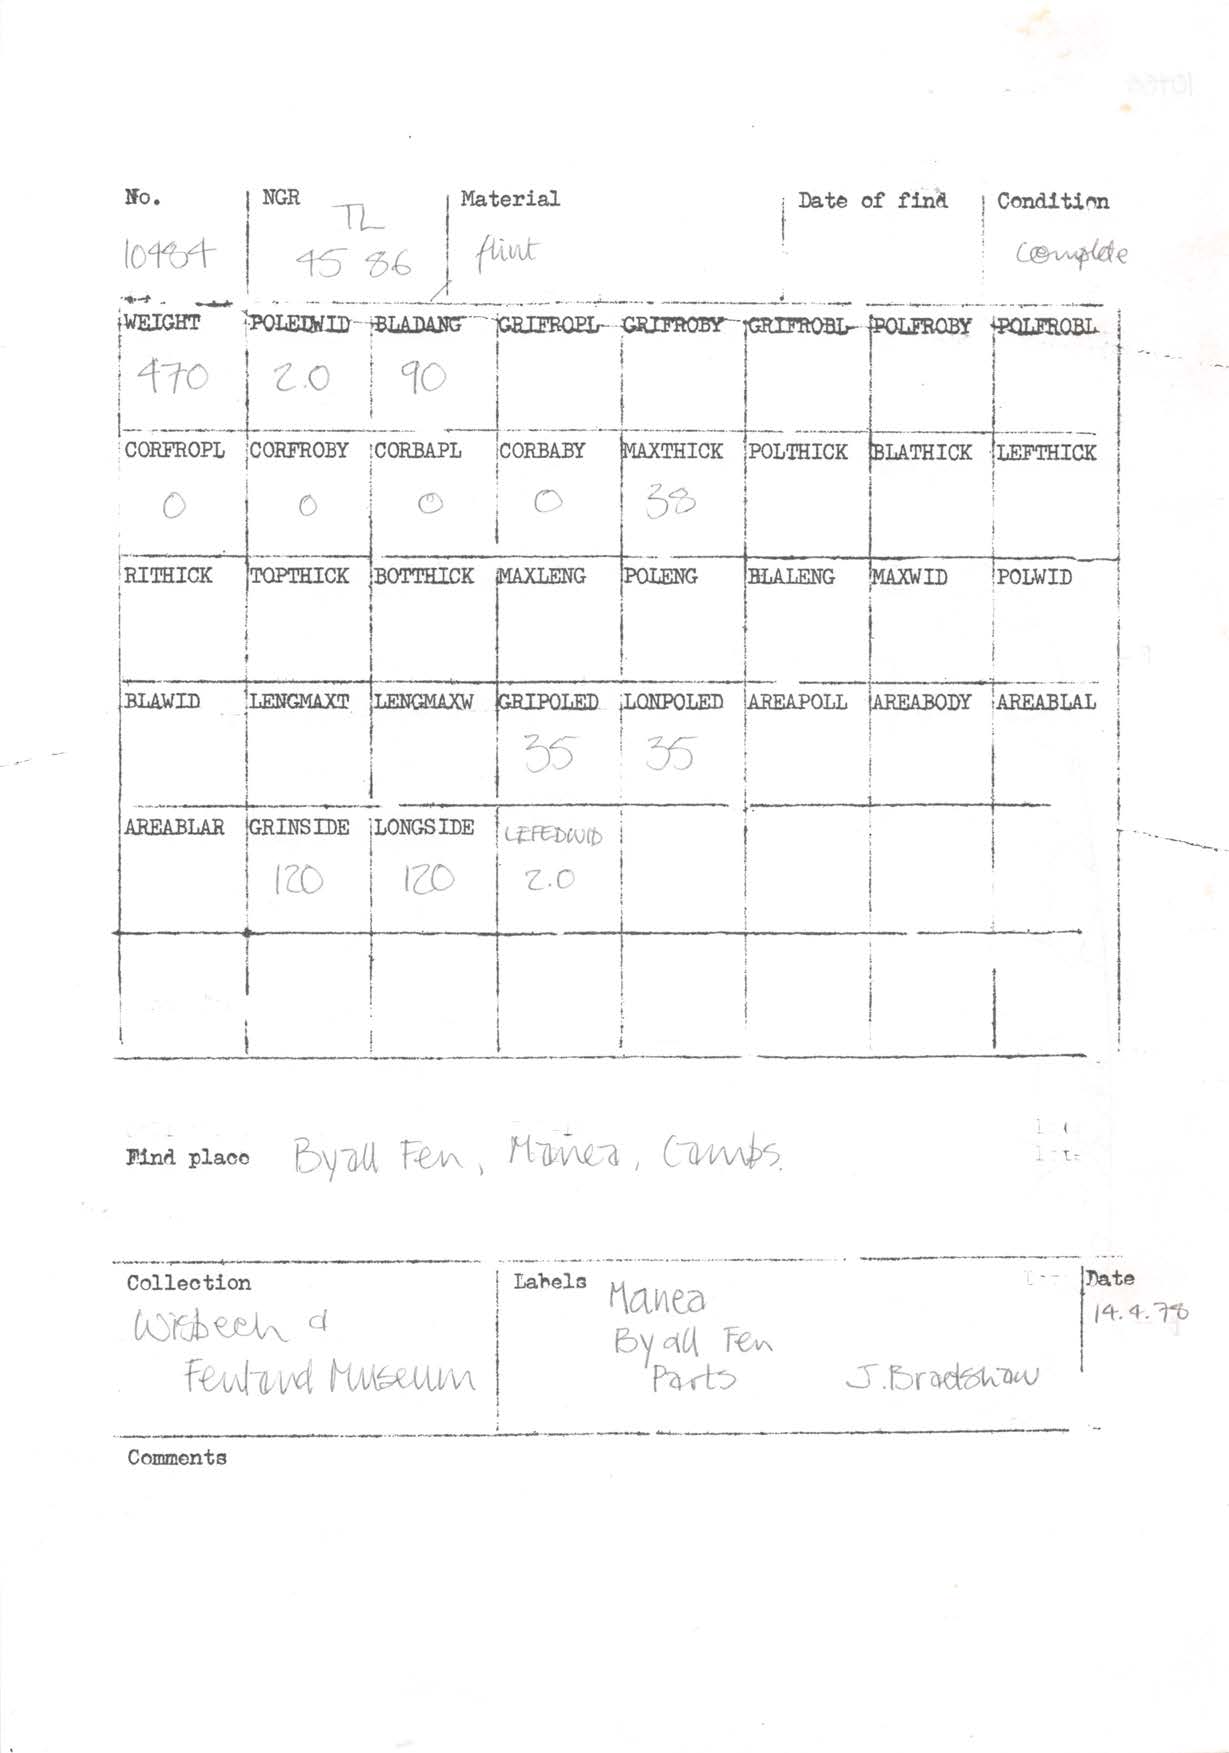 No. NGR Material Date of find Condition
TL
10484 45 86 flint complete
WEIGHT POLEDWID BLADANG GRIFROPL GRIFROBY GRIFROBL POLFROBY POLFROBL
470 2.0 90
CORFROPL CORFROBY CORBAPL CORBABY MAXTHICK POLTHICK BLATHICK LEFTHICK
0 0 0 0 38
RITHICK TOPTHICK BOTTHICK MAXLENG POLENG BLALENG MAXWID POLWID
BLAWID LENGMAXT LENGMAXW GRIPOLED LONPOLED AREAPOLL AREABODY AREABLAL
35 35
AREABLAR GRINSIDE LONGSIDE LEFEDWID
120 120 2.0
Find place Byall Fen, Manea, Cambs.
Collection Labels Date
Wisbech &
Fenland Museum
Manea
Byall Fen
Parts J. Bradshaw
14.4.78
Comments